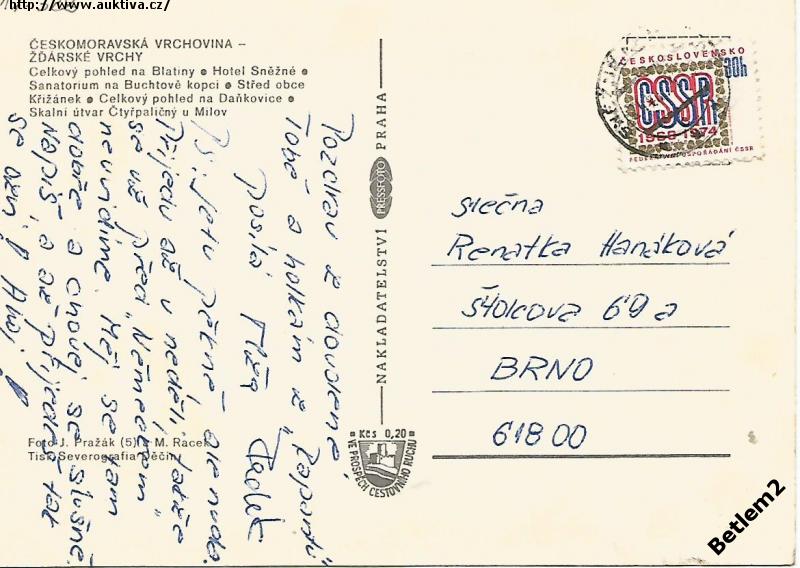 http://www.auktiva.cz/
ČESKOMORAVSKÁ VRCHOVINA –
ŽĎÁRSKÉ VRCHY
Celkový pohled na Blatiny ● Hotel Sněžné ●
Sanatorium na Buchtově kopci ● Střed obce
Křižánek ● Celkový pohled na Daňkovice ●
Skalní útvar Čtyřpaličný u Milov
Pozdrav z dovolené,
Tobě a holkám z „
posílá
Ps: Je tu pěkně ale nuda.
Přijedu až v neděli, takže
se už před „Německem"
neuvidíme. Měj se tam
dobře a chovej se slušně.
Napiš, a až přijedeš tak
se ozvi! Ahoj!
Foto J. Pražák (5) a M. Racek
Tisk Severografia Děčín
NAKLADATELSTVÍ PRESSFOTO PRAHA
Kčs 0,20
VE PROSPĚCH CESTOVNÍHO RUCHU
ČESKOSLOVENSKO
30h
ČSSR
1968-1974
FEDERATIVNÍ USPOŘÁDÁNÍ ČSSR
slečna
Renatka Hanáková
Štolcova 69a
BRNO
618 00
Betlem2